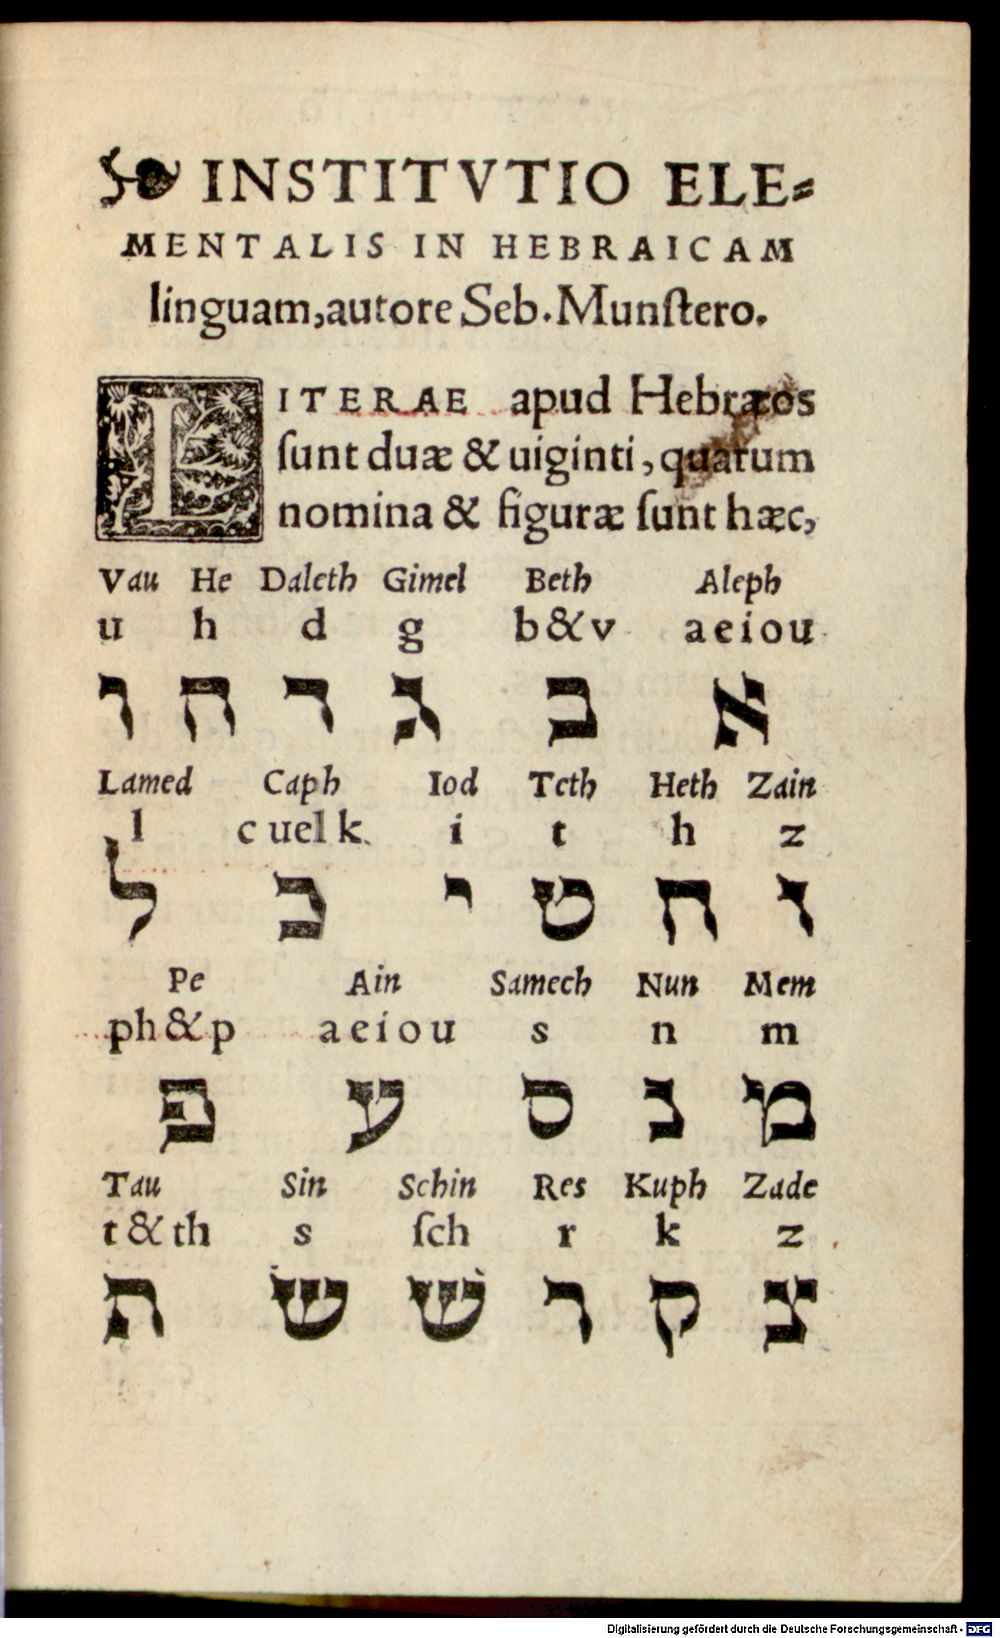 INSTITVTIO ELE⸗
MENTALIS IN HEBRAICAM
linguam, autore Seb. Munſtero.
LITERAE apud Hebræos
ſunt duæ & uiginti, quarum
nomina & figuræ ſunt hæc,
Vau He Daleth Gimel Beth Aleph
u h d g b & v a e i o u
א ב ג ד ה ו
Lamed Caph Iod Teth Heth Zain
l c uel k i t h z
ז ח ט י כ ל
Pe Ain Samech Nun Mem
ph & p a e i o u s n m
מ נ ס ע פ
Tau Sin Schin Res Kuph Zade
t & th s ſch r k z
צ ק ר שׁ שׂ ת
Digitalisierung gefördert durch die Deutsche Forschungsgemeinschaft - DFG